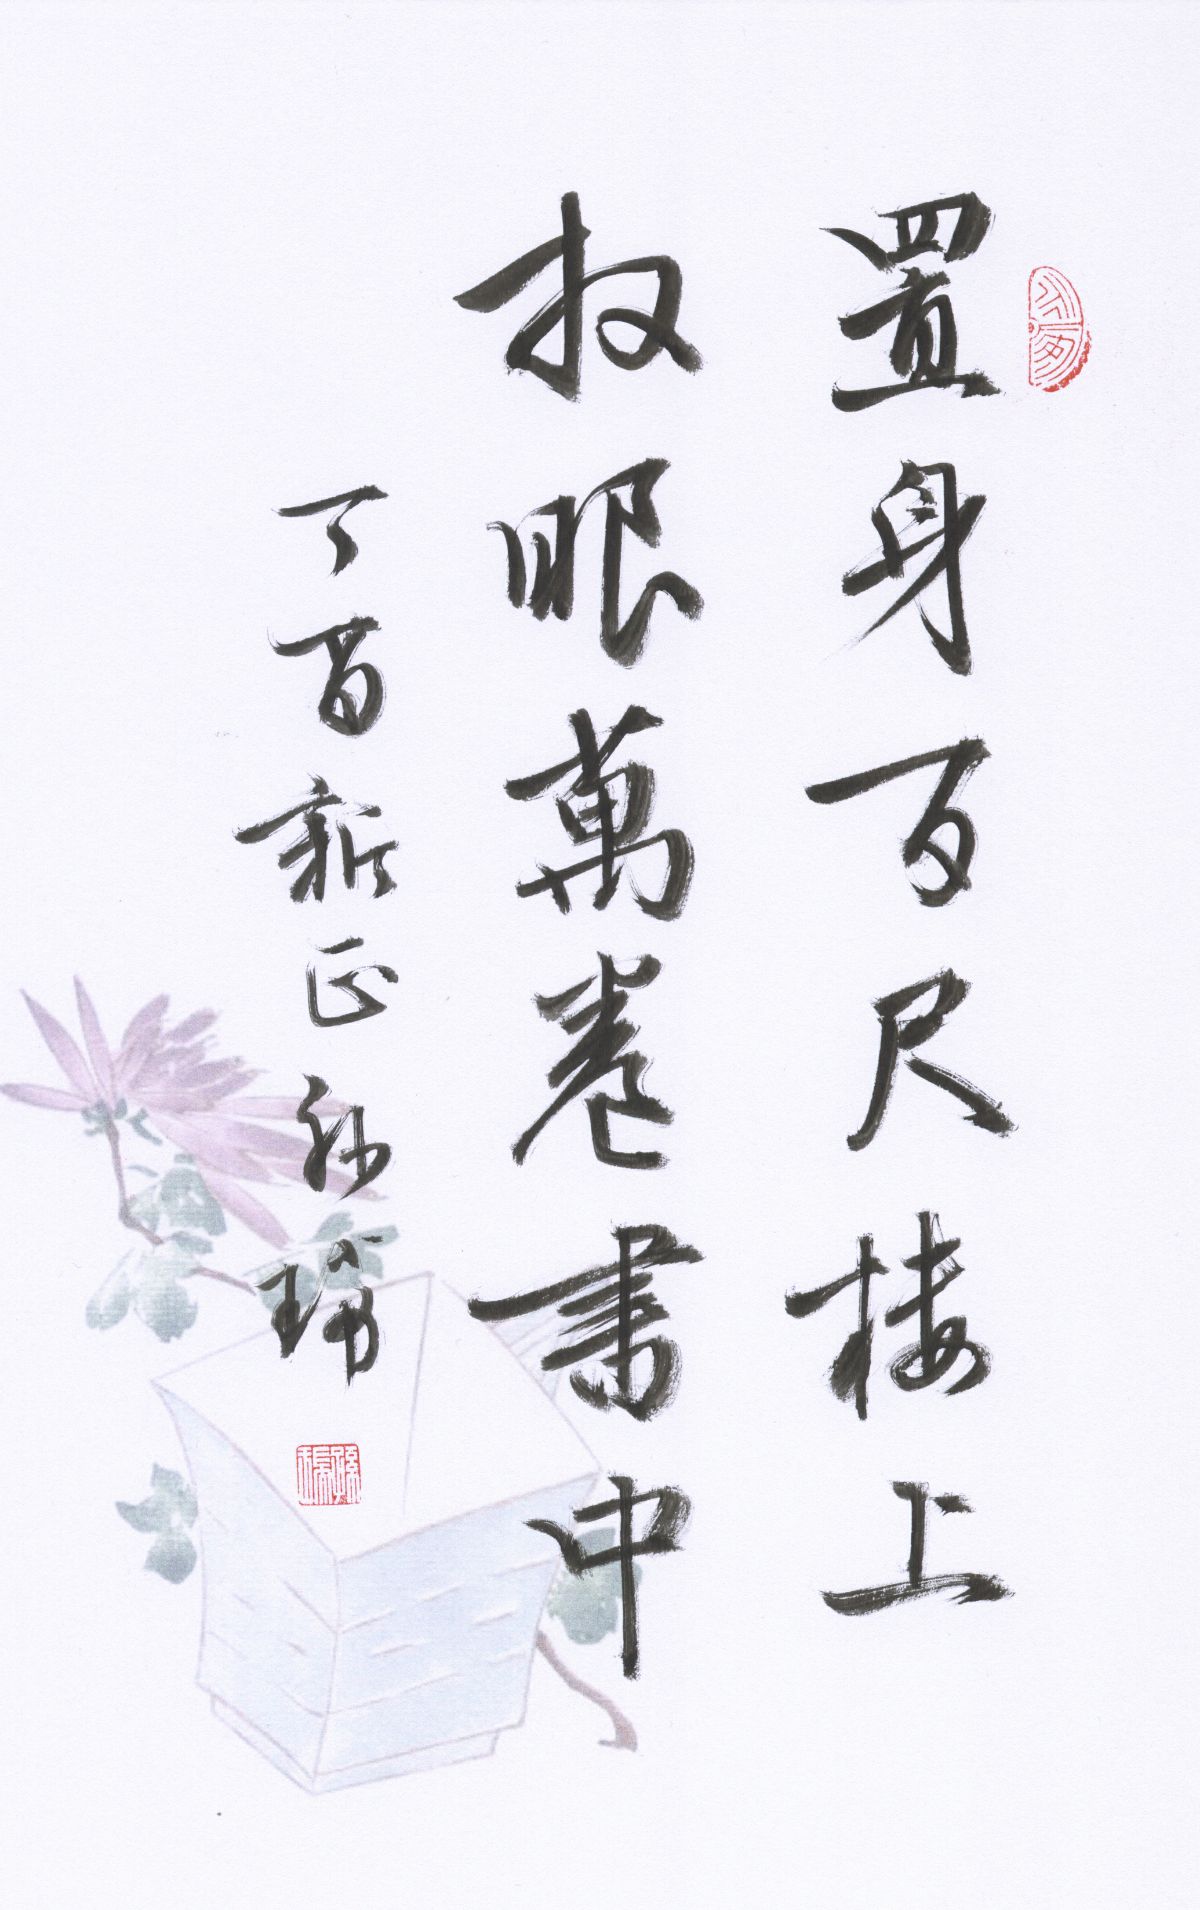 置身百尺楼上
放眼萬卷書中
丁酉新正孙